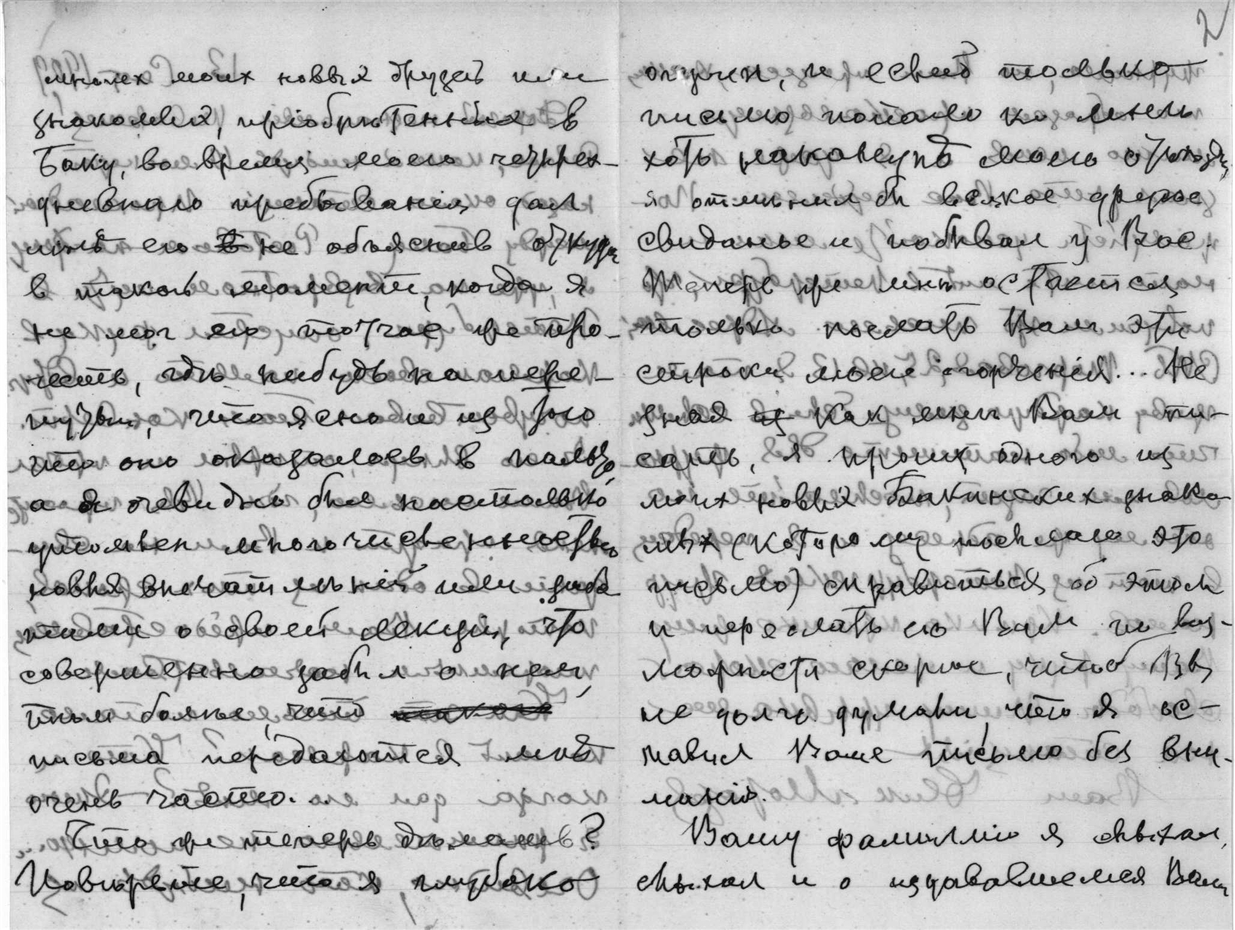 многих моих новых друзей или
знакомых, пріобрѣтенных в
Баку, во время моего четырех-
дневнаго пребыванія, дал
мнѣ его не объяснив откуда
в такой момент, когда я
не мог его тотчас же про-
честь, гдѣ нибудь на пере-
путьи, что ясно и из того
что оно оказалось в пальто,
а я очевидно был настолько
утомлен многочисленностью
новых впечатлѣній или
о своей лекціи, что
совершенно забыл о нем,
тѣм болѣе, что
письма передаются мнѣ
очень часто.
Что же теперь дѣлать?
Повѣрьте, что я глубоко
2
огорчен, и если б только
письмо попало ко мнѣ
хоть наканунѣ моего отъѣзда,
я отмѣнил бы всякое другое
свиданье и побывал у Вас.
Теперь же мнѣ остается
только послать Вам эти
строки моего огорченія... Не
зная как мнѣ Вам пи-
сать, я прошу одного из
моих новых Бакинских знако-
мых (которому посылаю это
письмо) справиться об этом
и переслать его Вам по воз-
можности скорѣе, чтоб Вы
не долго думали, что я ос-
тавил Ваше письмо без вни-
манія.
Вашу фамилію я слыхал,
слыхал и о издававшемся Вами